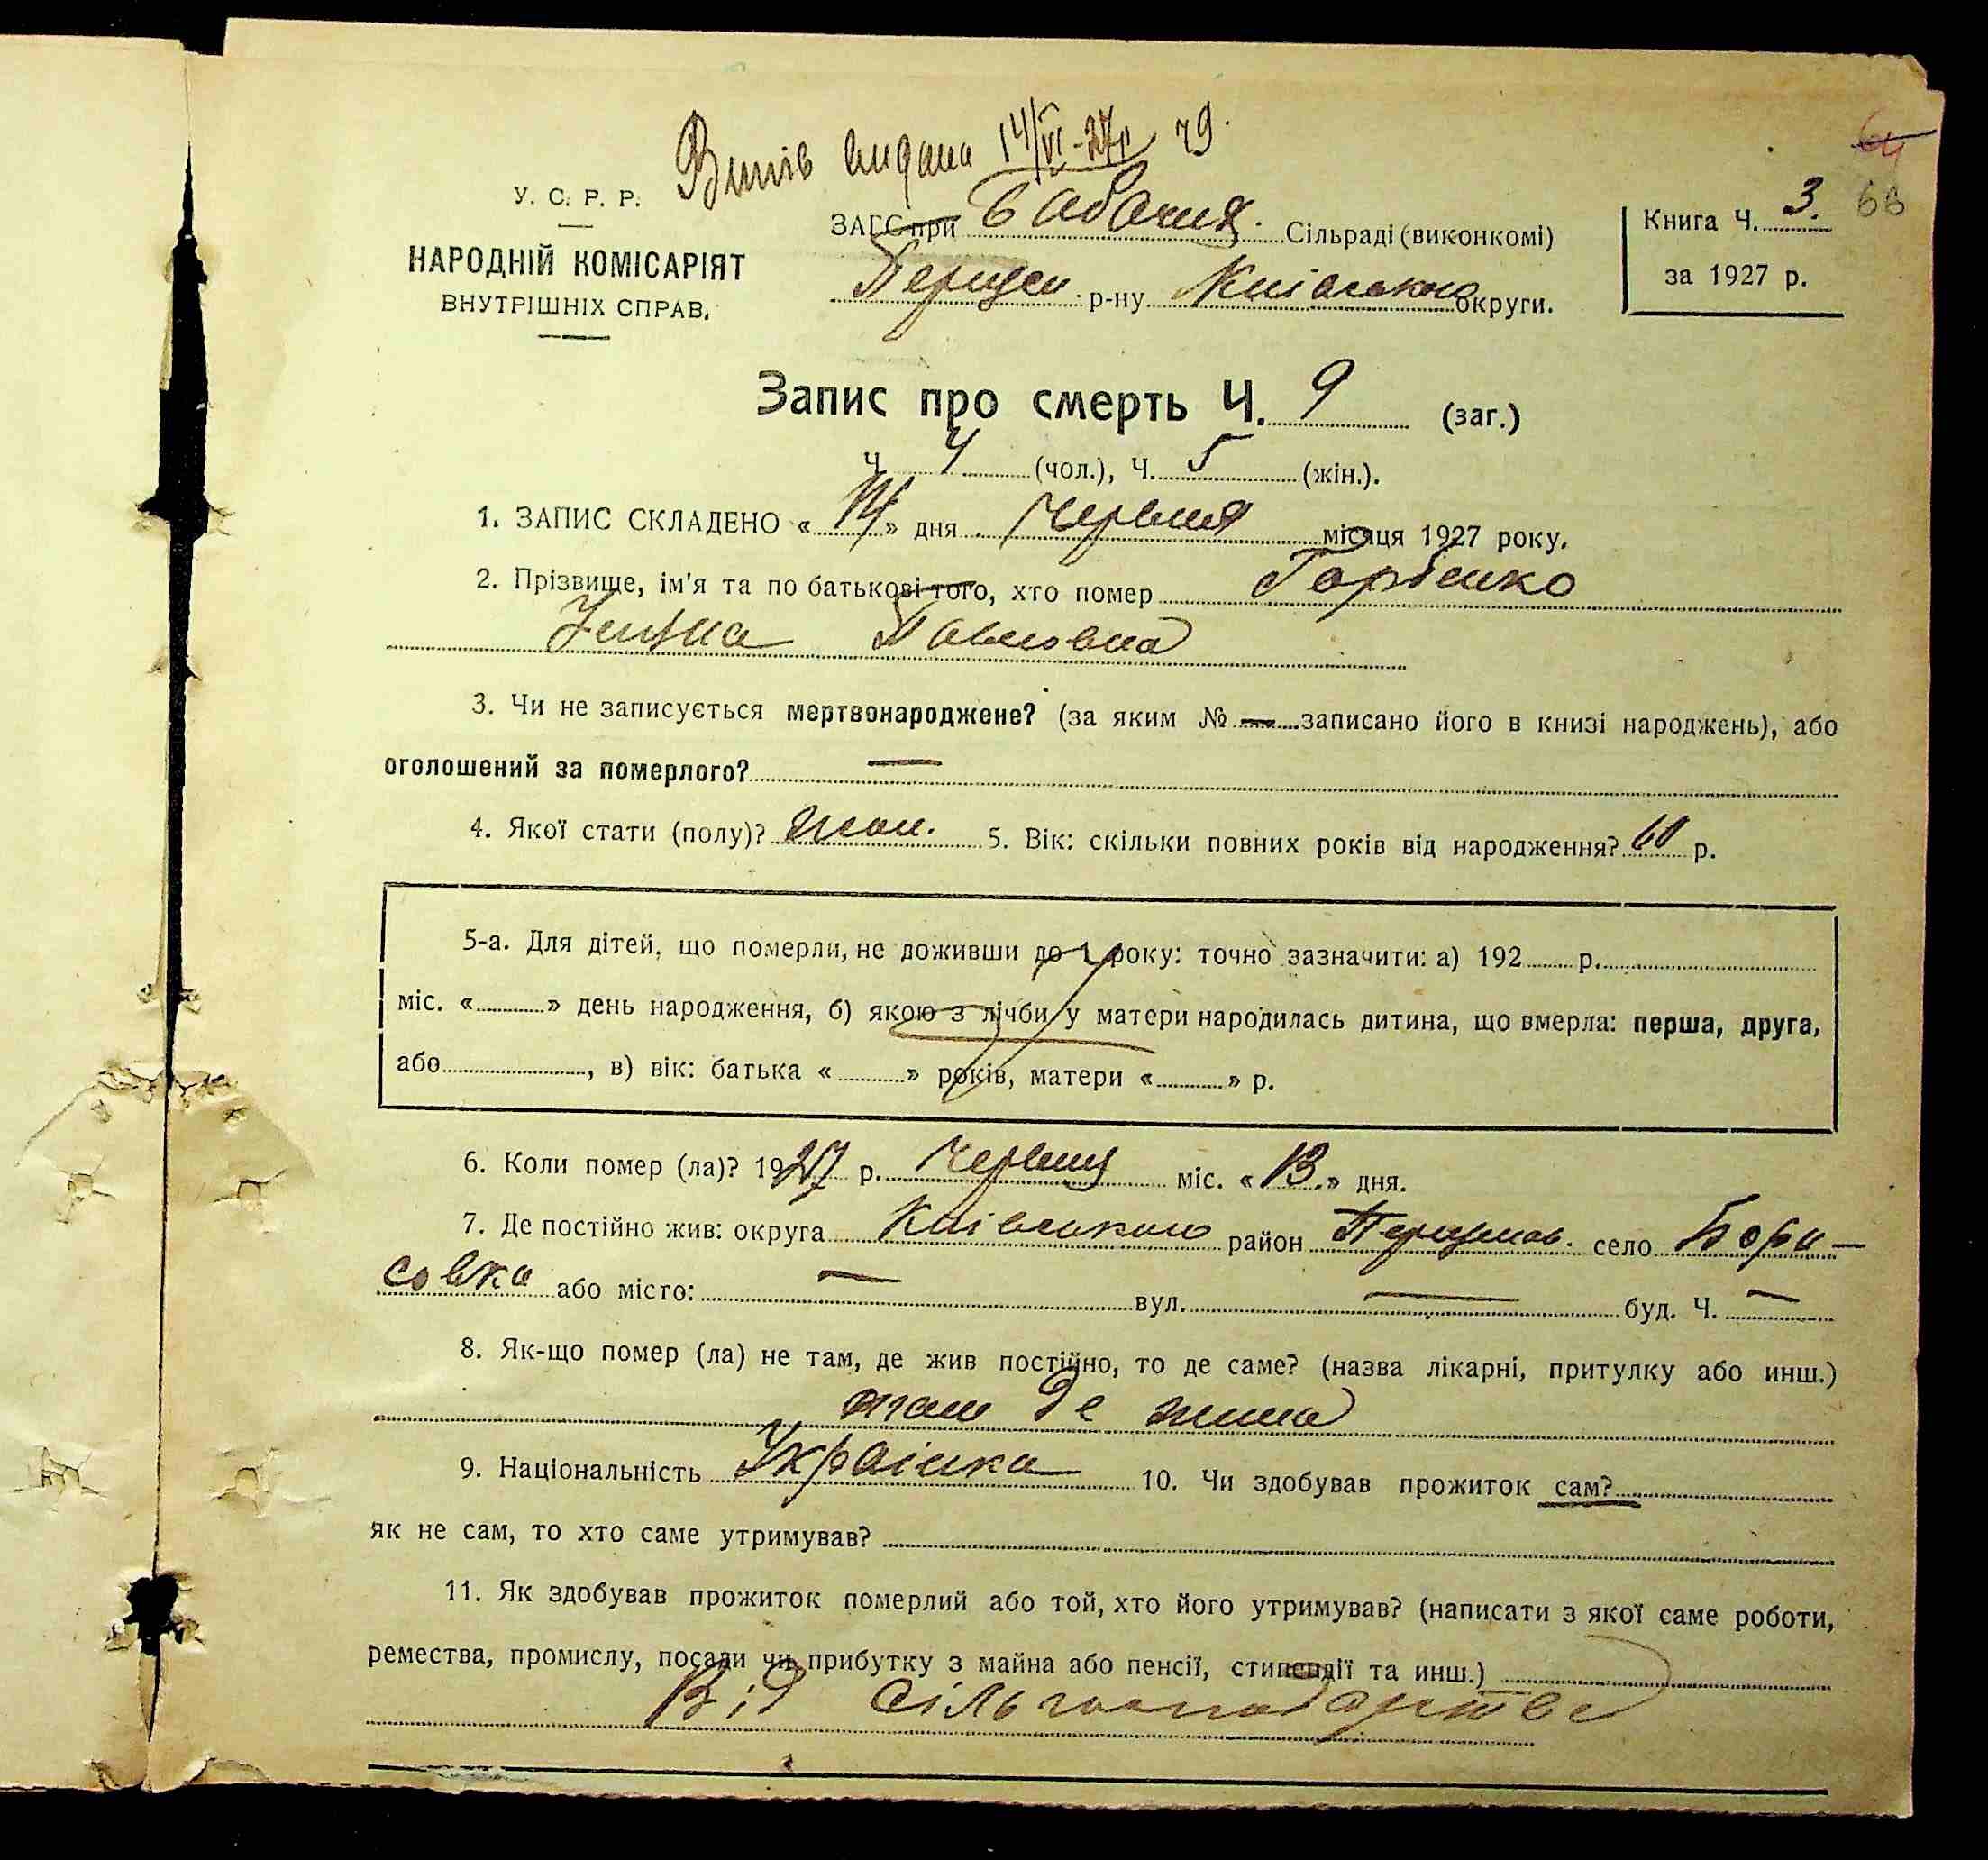 64
68
Випів видана 14/VI-27р 79.
У. С. Р. Р.
НАРОДНІЙ КОМІСАРІЯТ
ВНУТРІШНІХ СПРАВ.
ЗАГС при Сільраді (виконкомі)
р-ну Київською округи.
Книга Ч. 3.
за 1927 р.
Запис про смерть Ч. 9 (заг.)
Ч 4 (чол.), Ч. 5 (жін.).
1. ЗАПИС СКЛАДЕНО « 14 » дня Червня місяця 1927 року.
2. Прізвище, ім'я та по батькові того, хто помер Горбенко
Павловна
3. Чи не записується мертвонароджене? (за яким № — записано його в книзі народжень), або
оголошений за померлого? —
4. Якої стати (полу)? жон. 5. Вік: скільки повних років від народження? 60 р.
5-а. Для дітей, що померли, не доживши до 1 року: точно зазначити: а) 192 р.
міс. « » день народження, б) якою з лічби у матери народилась дитина, що вмерла: перша, друга,
або , в) вік: батька « » років, матери « » р.
6. Коли помер (ла)? 1927 р. Червня міс. « 13. » дня.
7. Де постійно жив: округа Київською район село Бори-
совка або місто: — вул. — буд. Ч. —
8. Як-що помер (ла) не там, де жив постійно, то де саме? (назва лікарні, притулку або инш.)
там де жила
9. Національність Українка 10. Чи здобував прожиток сам?
як не сам, то хто саме утримував?
11. Як здобував прожиток померлий або той, хто його утримував? (написати з якої саме роботи,
ремества, промислу, посади чи прибутку з майна або пенсії, стипендії та инш.)
Від сільгосподарства